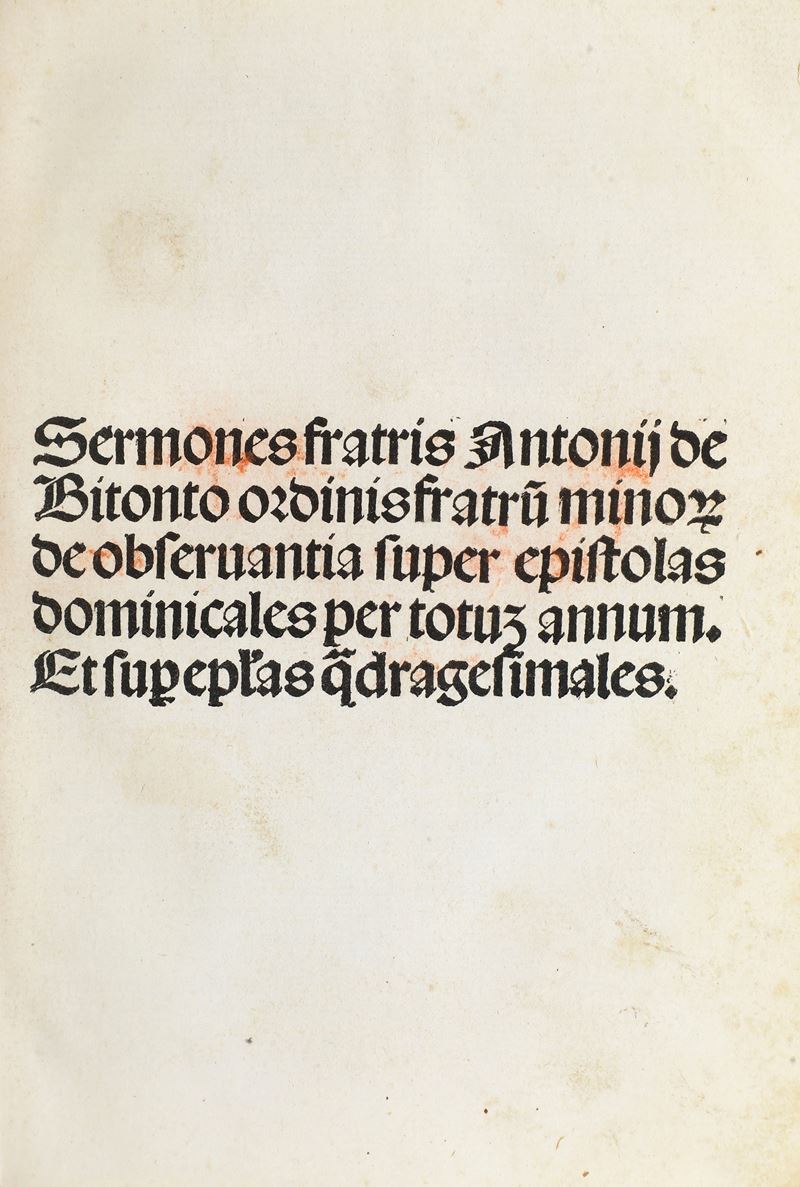 Sermones fratris Antonij de
Bitonto ordinis fratrū minoꝝ
de obſeruantia ſuper epiſtolas
dominicales per totuꝫ annum.
Et ſuꝑ ep̄łas q̄drageſimales.